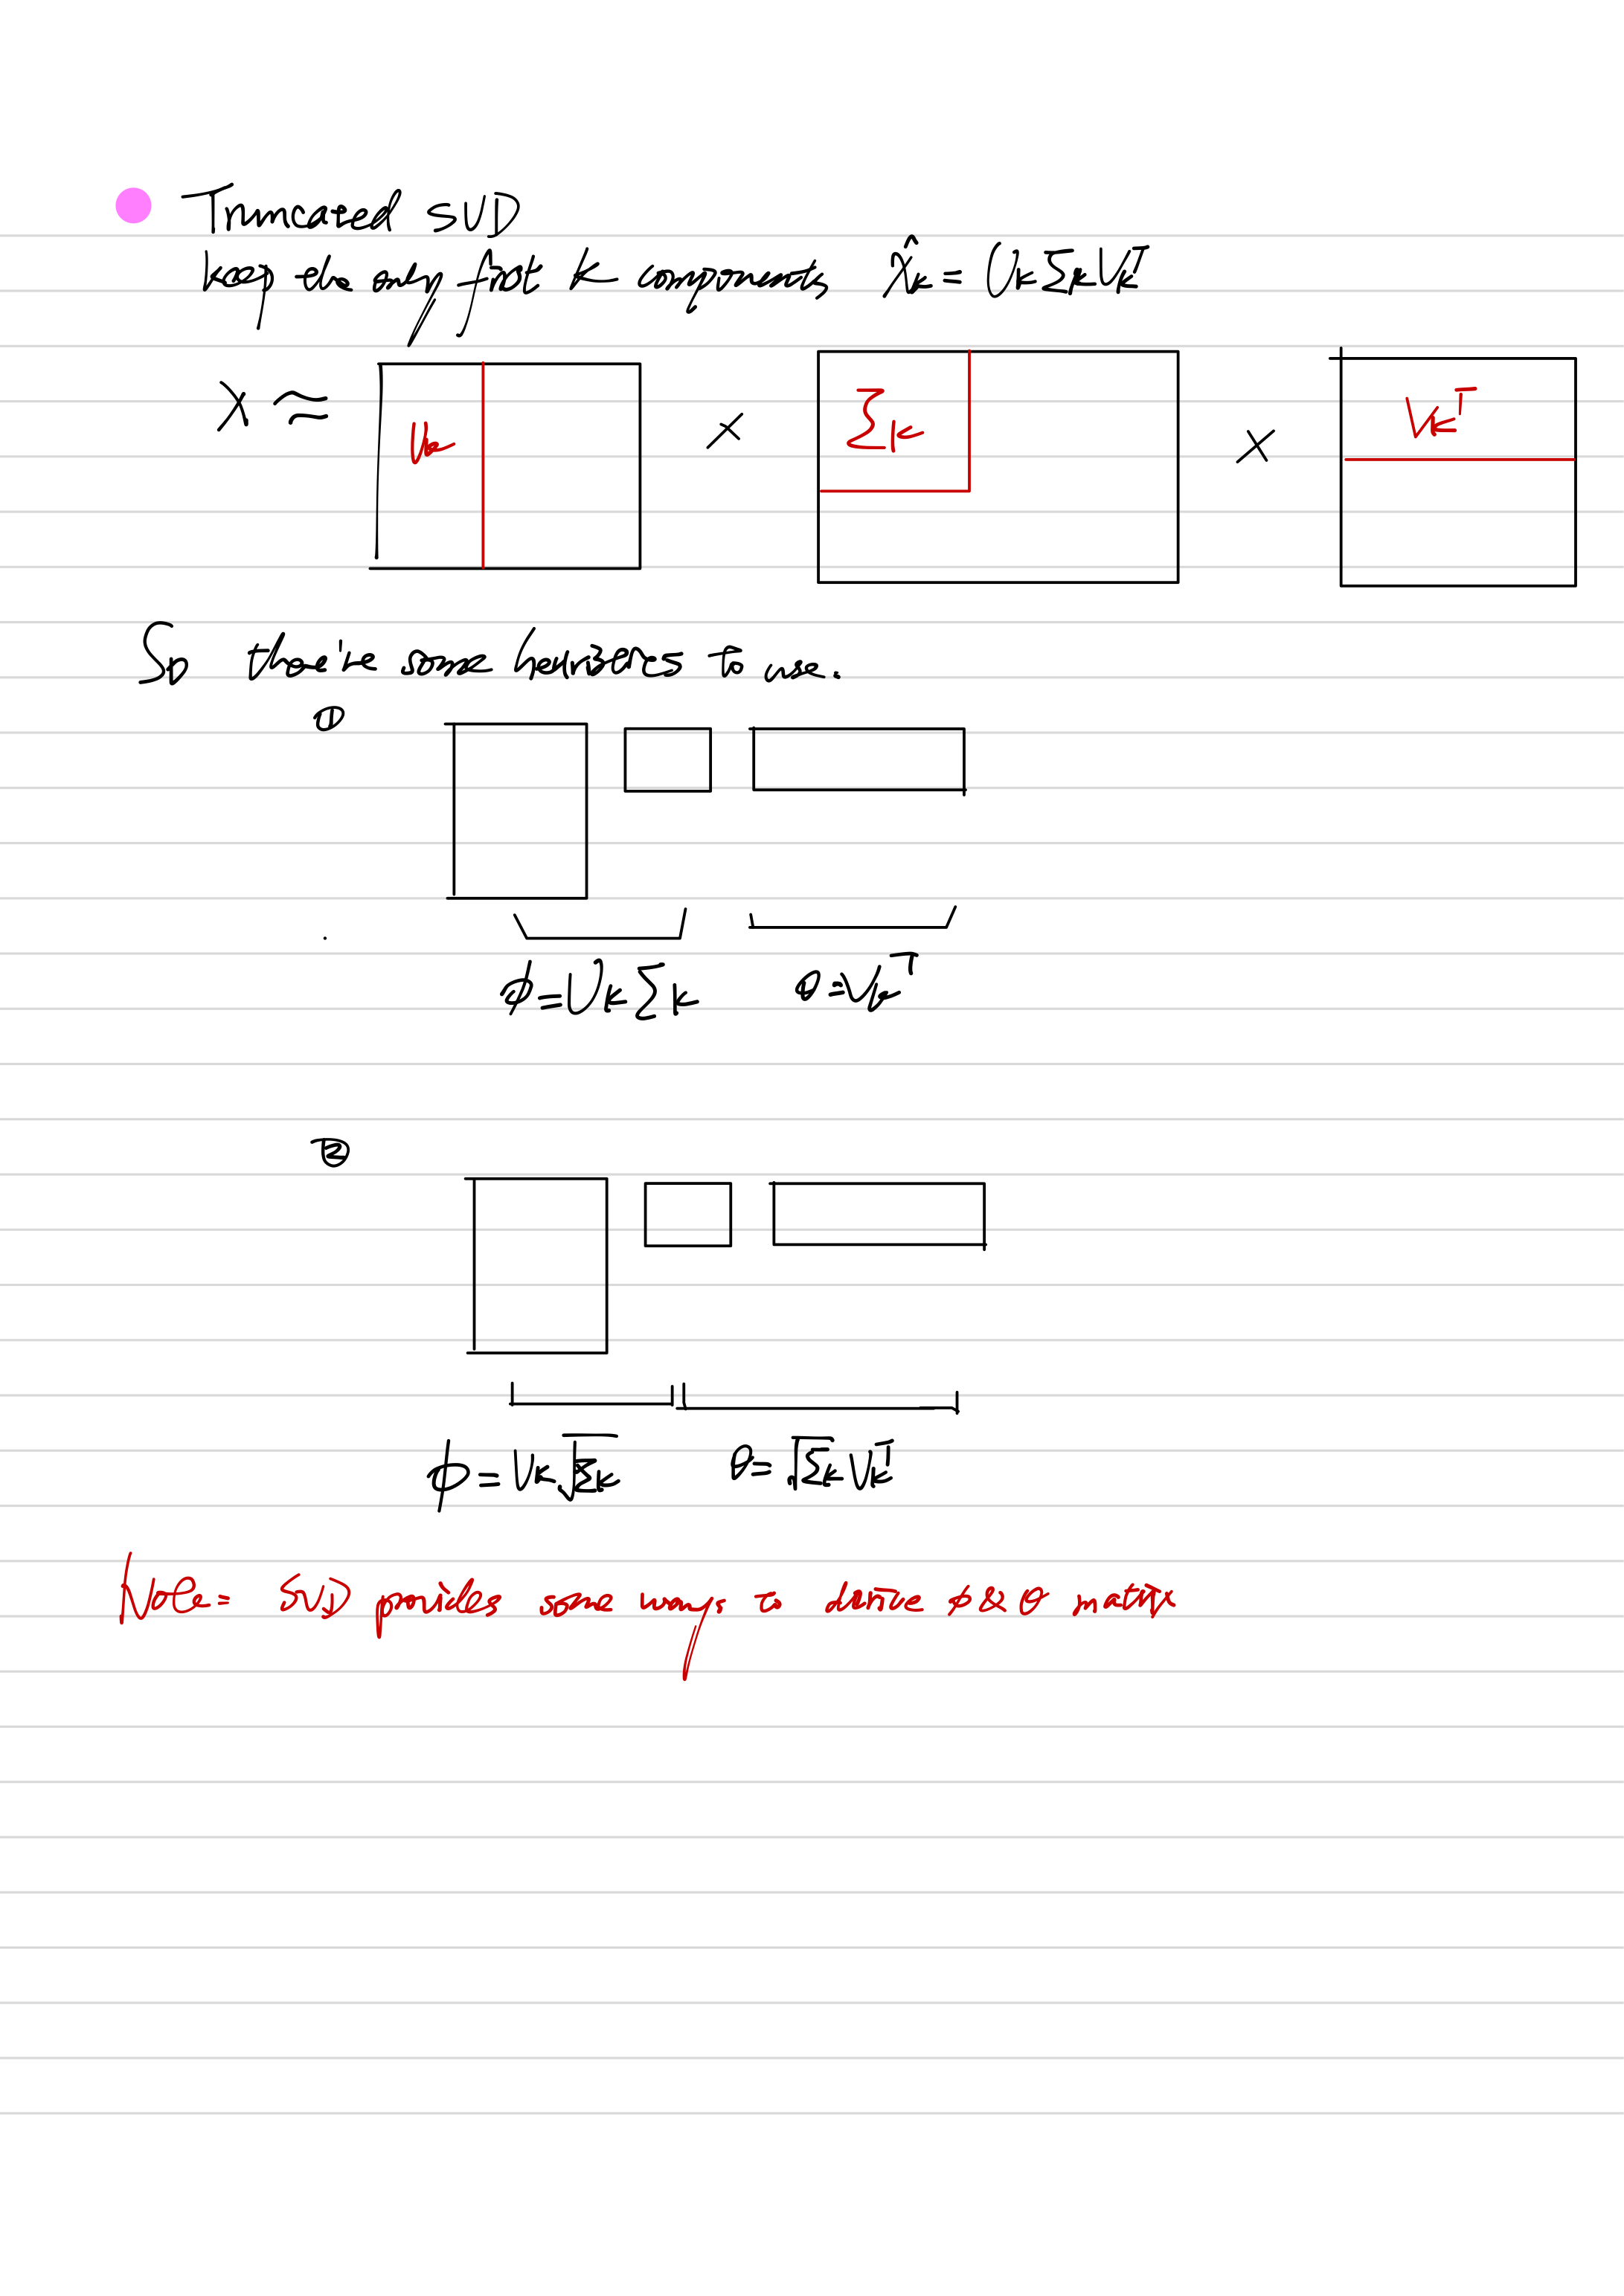 Truncated SVD
keep the only first k components X̂k = UkΣkVkᵀ
X ≈ Uk × Σk × Vkᵀ
So there're some heuristics to use.
①
ϕ=UkΣk θ=Vkᵀ
②
ϕ=Uk√Σk θ=√Σk Vkᵀ
Note= SVD provides some ways to derive ϕ & θ matrix